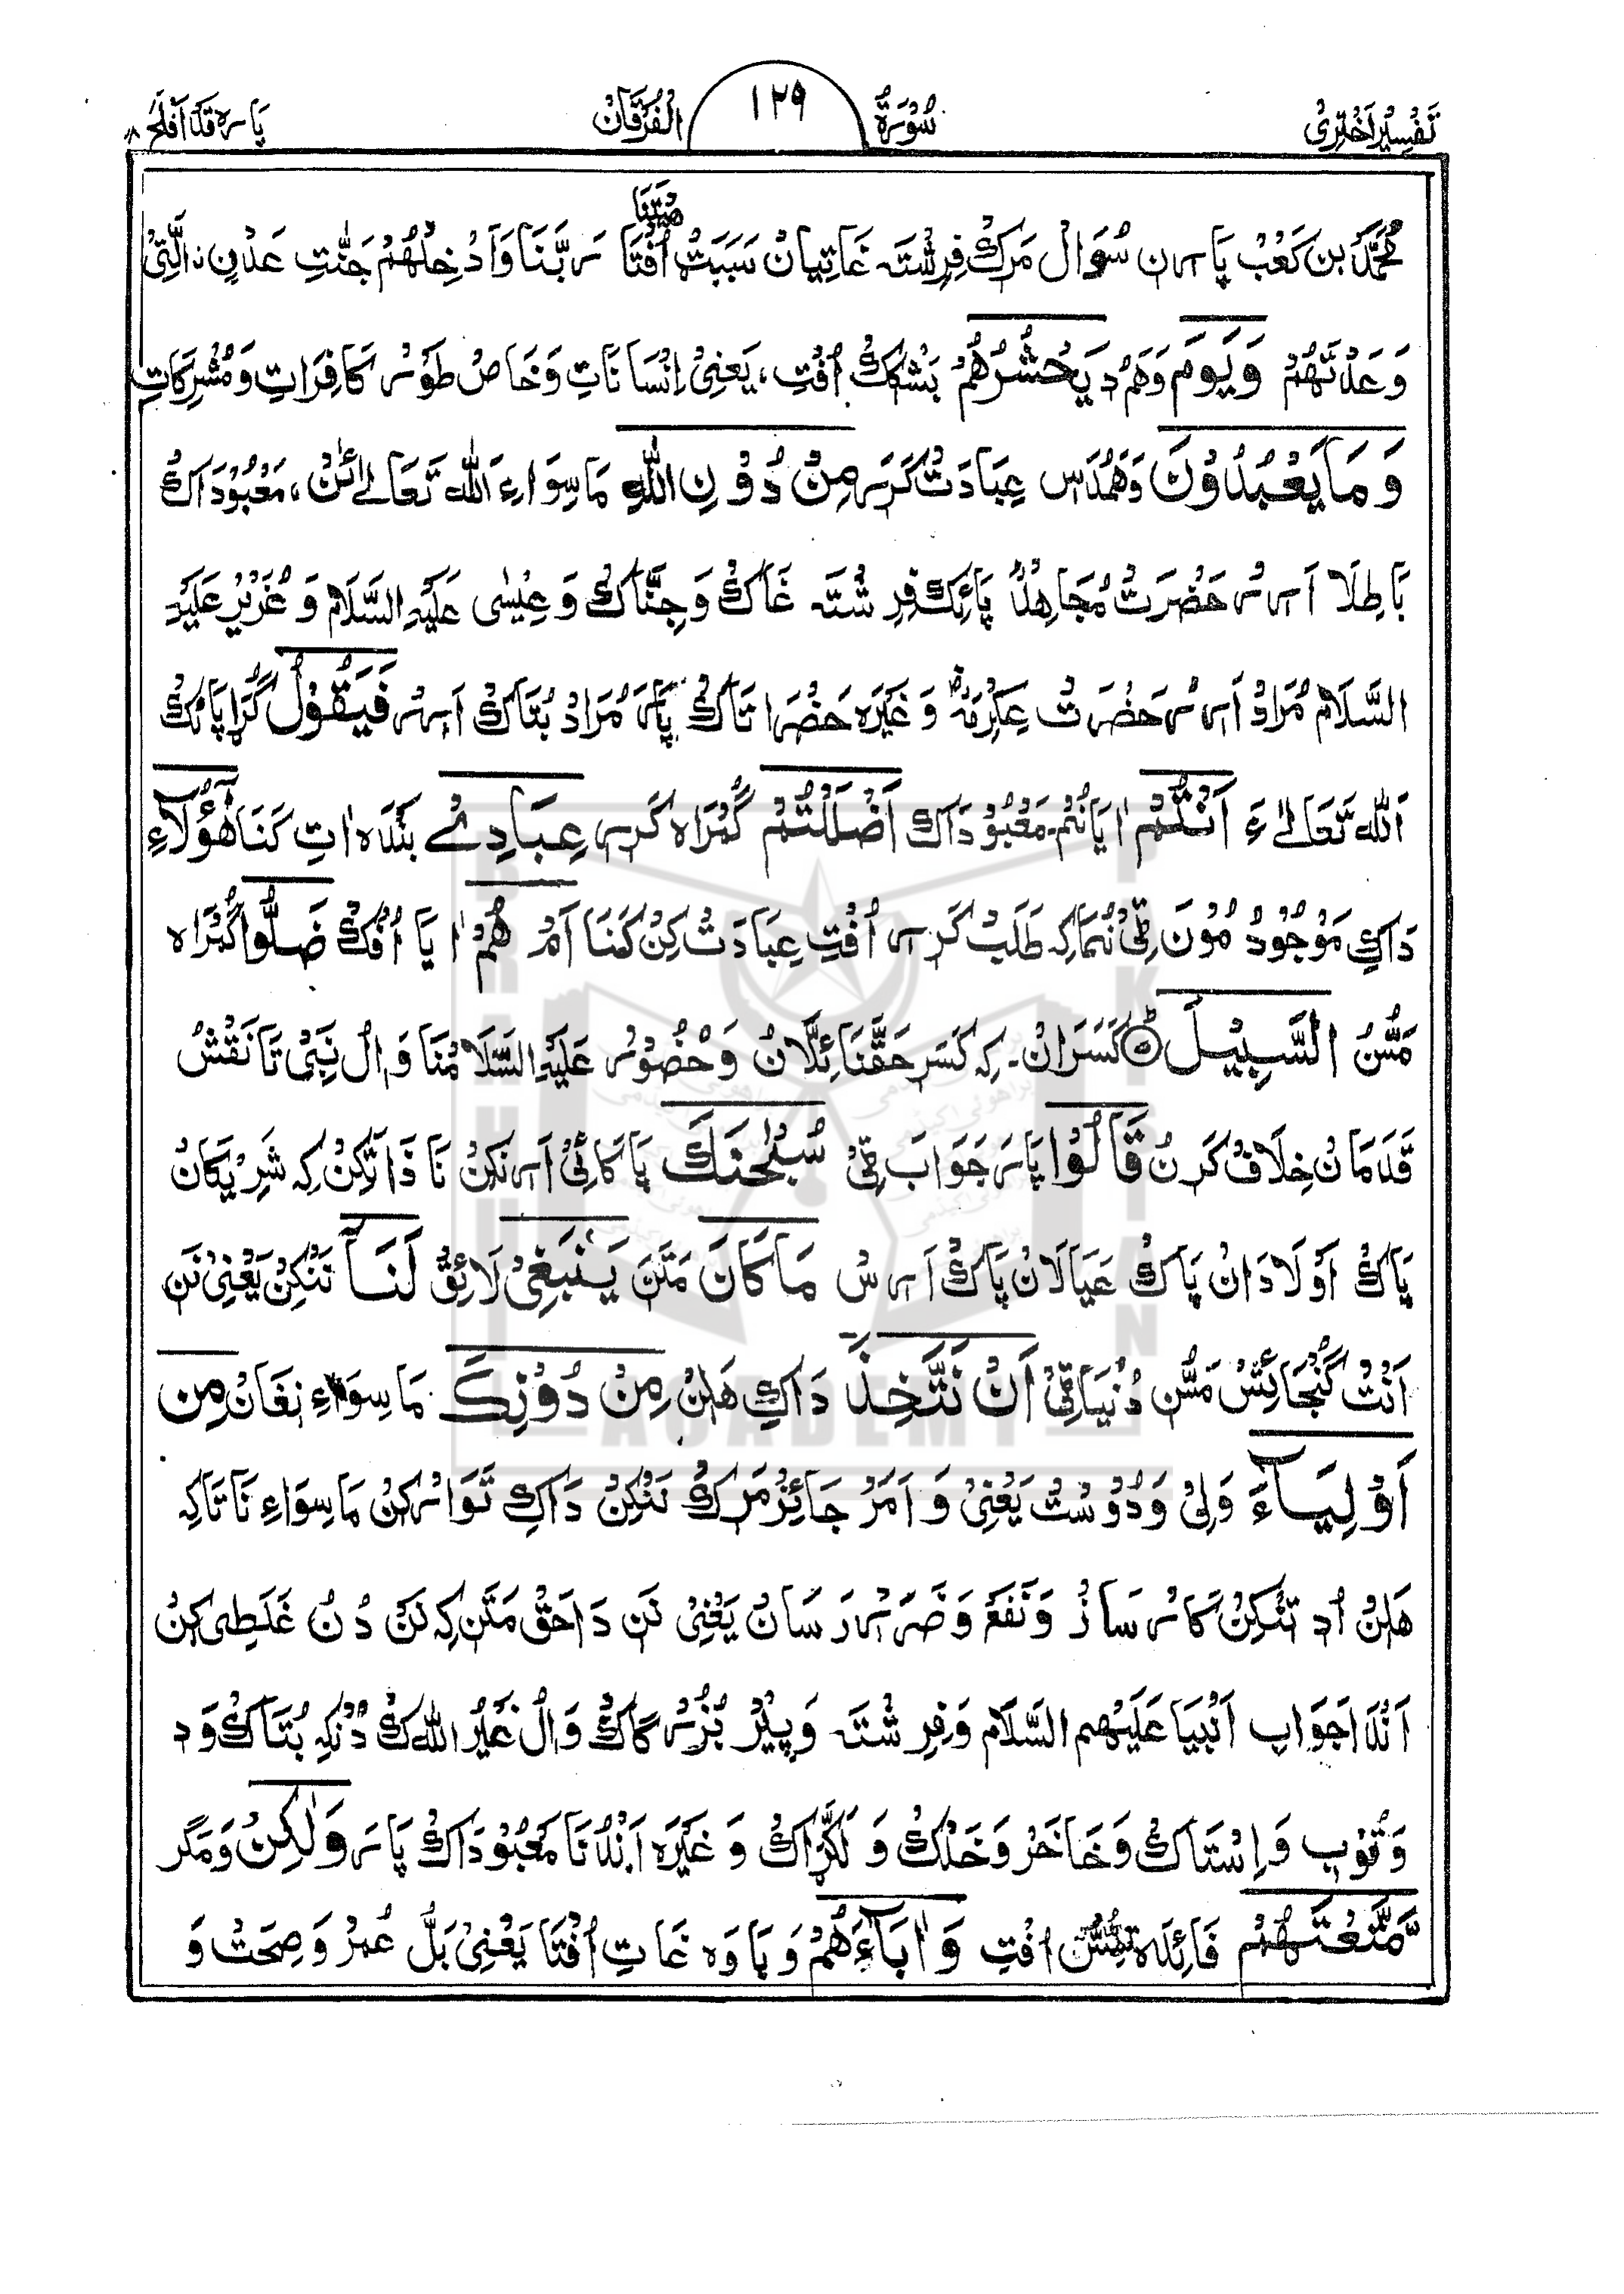 تَفْسِیْرِ اَخْتَرِیْ سُوْرَةُ ١٢٩ الْفُرْقَانْ پَارہ قَدْ اَفْلَحَ ١٨
مُحَمَّدْ بِن کَعَبْ پَارن سُوَالْ مَرَکْ فِرِشْتَہ غَاتِیَانْ سَبَبَتْ اُفْتَا رَبَّنَا وَاَدْخِلْهُمْ جَنّٰتِ عَدْنِ ۨالَّتِیْ
وَعَدْتَّهُمْ وَیَوْمَ وَهَمْ دٍ یَحْشُرُهُمْ بَشْکَکْ اُفْتِ، یَعْنِیْ اِنْسَانَاتِ وَخَاصْ طَوْرْ کَافِرَاتِ وَمُشْرِکَاتِ
وَمَا یَعْبُدُوْنَ وَهَمْدَاسِ عِبَادَتْ کَرَر مِنْ دُوْنِ اللّٰهِ مَاسِوَاءِ اَللّٰہ تَعَالٰے ئَنْ، مَعْبُوْدَاکْ
بَاطِلَا اَرر حَضْرَتْ مُجَاهِدْ پَائِکْ فِرِشْتَہ غَاکْ وَجِنَّاکْ وَعِیْسٰی عَلَیْہِ السَّلَامْ وَ عُزَیْرْ عَلَیْہِ
السَّلَامْ مُرَادْ اَرر حَضْرَتْ عِکْرِمَہْ وَغَیْرَہ حَضْرَاتَاکْ پَارَ مُرَادْ بُتَاکْ اَرر فَیَقُوْلُ گُڑَا پَائِکْ
اَللّٰہ تَعَالٰے ءَ اَنْتُمْ اٰیَا نُمْ مَعْبُوْدَاکْ اَضْلَلْتُمْ گُمْرَاہ کَرِر عِبَادِیْ بَنْدَہ اتِ کَنَا هٰٓؤُلَآءِ
دَاکِ مَوْجُوْدْ مُوْنَ ٹِیْ نُمَا کِہ طَلَبْ کَرر اُفْتِ عِبَادَتْ کِنْ کَنَا اَمْ هُمْ اٰیَا اُفْکْ ضَلُّوا گُمْرَاہ
مَسُّنْ السَّبِیْلَ کَسَرَانْ۔ کِہ کَسَر حَقَّنَا ئِلَّانْ وَحُضُوْرْ عَلَیْہِ السَّلَامْنَا وَاٰلْ نَبِیْ تَا نَقْشْ
قَدَمَانْ خِلَافْ کَرنْ قَالُوْا پَارَ جَوَابَ ٹِیْ سُبْحٰنَكَ پَاکَائِیْ اَر نَکِنْ نَا ذَاتکِنْ کِہ شَرِیْکَانْ
پَاکْ اَوْلَادَانْ پَاکْ عَیَالَانْ پَاکْ اَرسْ مَا کَانَ مَتَنَ یَنْۢبَغِیْ لَائِقْ لَنَآ نَنْکِنْ یَعْنِیْ نَن
اَنْتْ گُنْجَائِشْ مَسُّن دُنْیَاٹِیْ اَنْ نَّتَّخِذَ دَاکِ هَلِنْ مِنْ دُوْنِكَ مَاسِوَاءِ نِغَانْ مِن
اَوْلِیَآءَ وَلِیْ وَدُوْسْتْ یَعْنِیْ وَ اَمَرْ جَائِزْ مَرَکْ نَنْکِنْ دَاکِ تَوَارْ کِنْ مَاسِوَاءِ نَا تَاکِہ
هَلِنْ اُدِ تَنْکِنْ کَارسَازْ وَنَفَعْ وَضَرَرْ رَسَانْ یَعْنِیْ نَن دَا حَقْ مَتَن کِہ نَنْ دُنْ غَلَطِی کِنْ
اَنْدَا جَوَابِ اَنْبِیَا عَلَیْهِمِ السَّلَامْ وَفِرِشْتَہ وَپِیْرْ بُزُرْگَاکْ وَاٰلْ غَیْرُ اللّٰہ کْ دُنْکِہ بُتَاکْ وَدٍ
وَتُوْبِ وَ اِسْتَاکْ وَخَاخَرْ وَخَلْکْ وَ لَکَّڑَاکْ وَ غَیْرَہ اَنْدُنَا مَعْبُوْدَاکْ پَارَ وَلٰکِنْ وَمَگَر
مَّتَّعْتَهُمْ فَائِدَہ اُفْتِ وَاٰبَآءَهُمْ وَ بَاوَہ غَاتِ اُفْتَا یَعْنِیْ بَلُّ عُمْرْ وَ صِحَتْ وَ